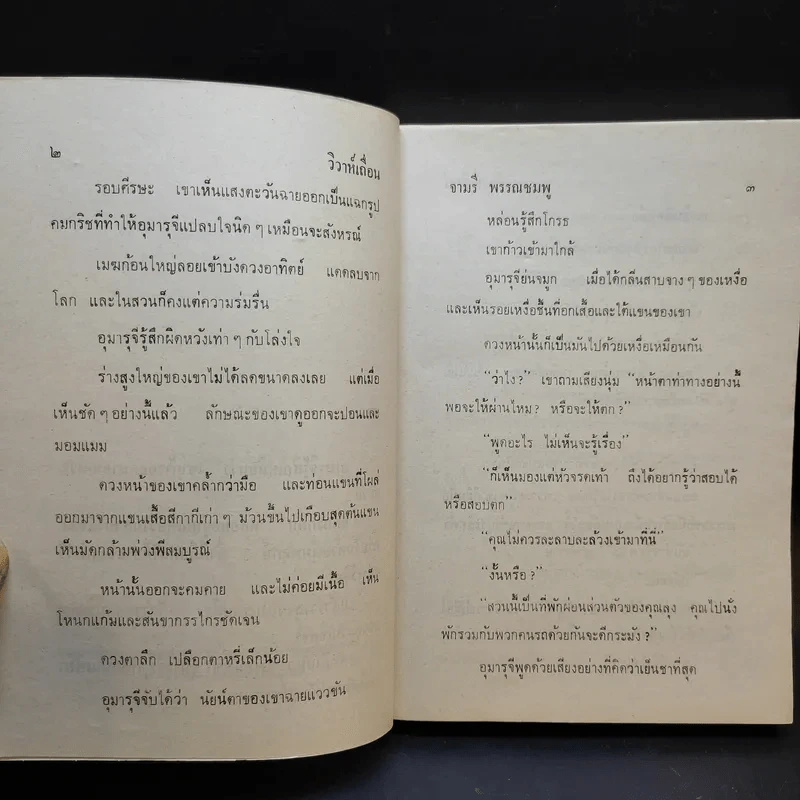 ๒
วิวาห์เถื่อน
รอบศีรษะ เขาเห็นแสงตะวันฉายออกเป็นแฉกรูป
คมกริชที่ทำให้อุมารุจีแปลบใจนิด ๆ เหมือนจะสังหรณ์
เมฆก้อนใหญ่ลอยเข้าบังดวงอาทิตย์ แดดลบจาก
โลก และในสวนก็คงแต่ความร่มรื่น
อุมารุจีรู้สึกผิดหวังเท่า ๆ กับโล่งใจ
ร่างสูงใหญ่ของเขาไม่ได้ลดขนาดลงเลย แต่เมื่อ
เห็นชัด ๆ อย่างนี้แล้ว ลักษณะของเขาดูออกจะปอนและ
มอมแมม
ดวงหน้าของเขาคล้ำกว่ามือ และท่อนแขนที่โผล่
ออกมาจากแขนเสื้อสีกากีเก่า ๆ ม้วนขึ้นไปเกือบสุดต้นแขน
เห็นมัดกล้ามพ่วงพีสมบูรณ์
หน้านั้นออกจะคมคาย และไม่ค่อยมีเนื้อ เห็น
โหนกแก้มและสันขากรรไกรชัดเจน
ดวงตาลึก เปลือกตาหรี่เล็กน้อย
อุมารุจีจับได้ว่า นัยน์ตาของเขาฉายแววขัน
จามรี พรรณชมพู
๓
หล่อนรู้สึกโกรธ
เขาก้าวเข้ามาใกล้
อุมารุจีย่นจมูก เมื่อได้กลิ่นสาบจาง ๆ ของเหงื่อ
และเห็นรอยเหงื่อชื้นที่อกเสื้อและใต้แขนของเขา
ดวงหน้านั้นก็เป็นมันไปด้วยเหงื่อเหมือนกัน
“ว่าไง?” เขาถามเสียงนุ่ม “หน้าตาท่าทางอย่างนี้
พอจะให้ผ่านไหม? หรือจะให้ตก?”
“พูดอะไร ไม่เห็นจะรู้เรื่อง”
“ก็เห็นมองแต่หัวจรดเท้า ถึงได้อยากรู้ว่าสอบได้
หรือสอบตก”
“คุณไม่ควรละลาบละล้วงเข้ามาที่นี่”
“งั้นหรือ?”
“สวนนี้เป็นที่พักผ่อนส่วนตัวของคุณลุง คุณไปนั่ง
พักรวมกับพวกคนรถด้วยกันจะดีกระมัง?”
อุมารุจีพูดด้วยเสียงอย่างที่คิดว่าเย็นชาที่สุด